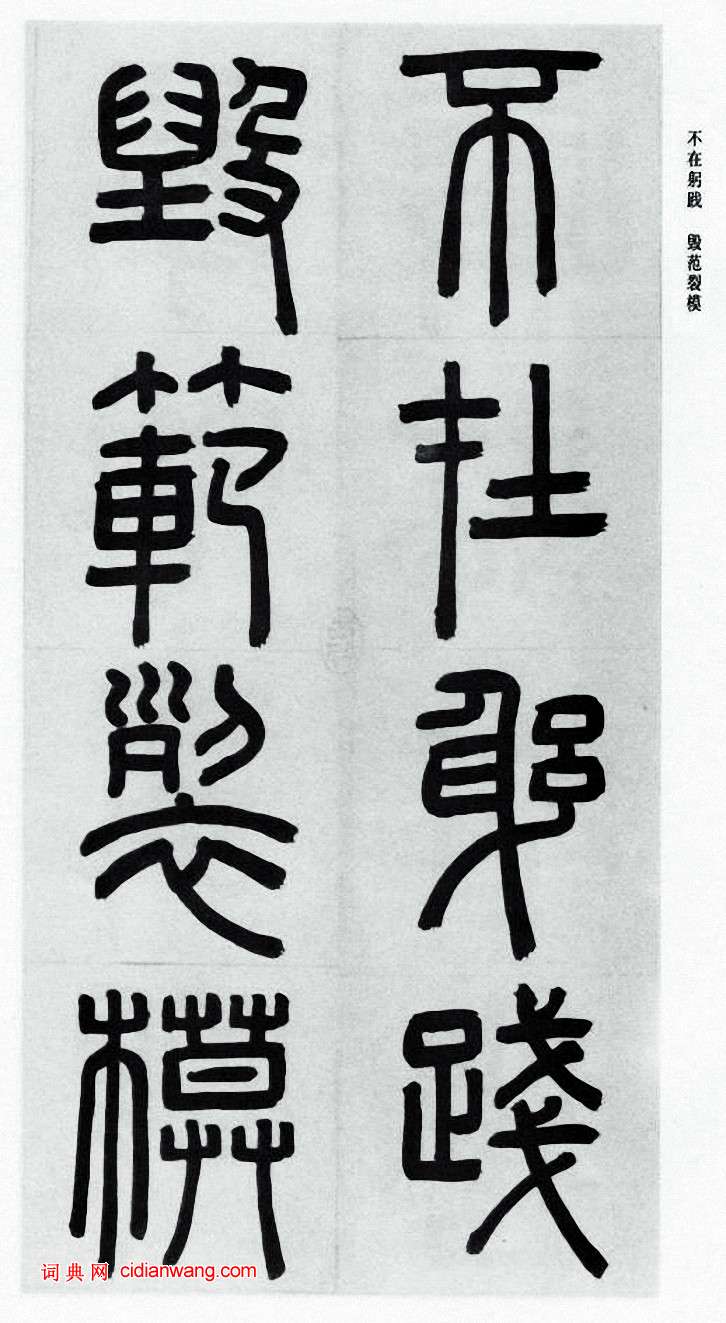 不在躬踐
毀範裂模
不在躬践 毁范裂模
词典网 cidianwang.com